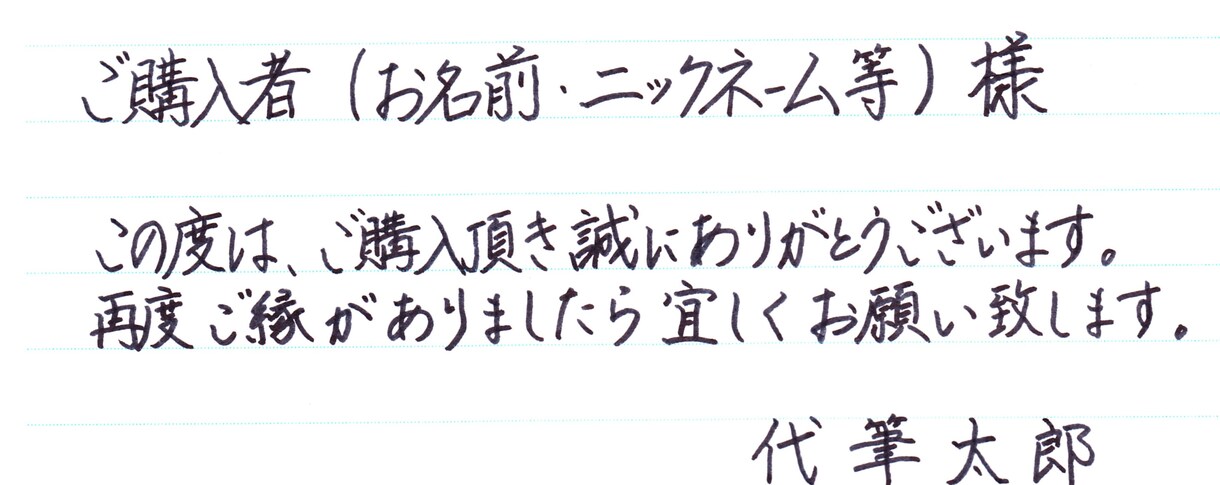 ご購入者（お名前・ニックネーム等）様
この度は、ご購入頂き誠にありがとうございます。
再度ご縁がありましたら宜しくお願い致します。
代筆太郎